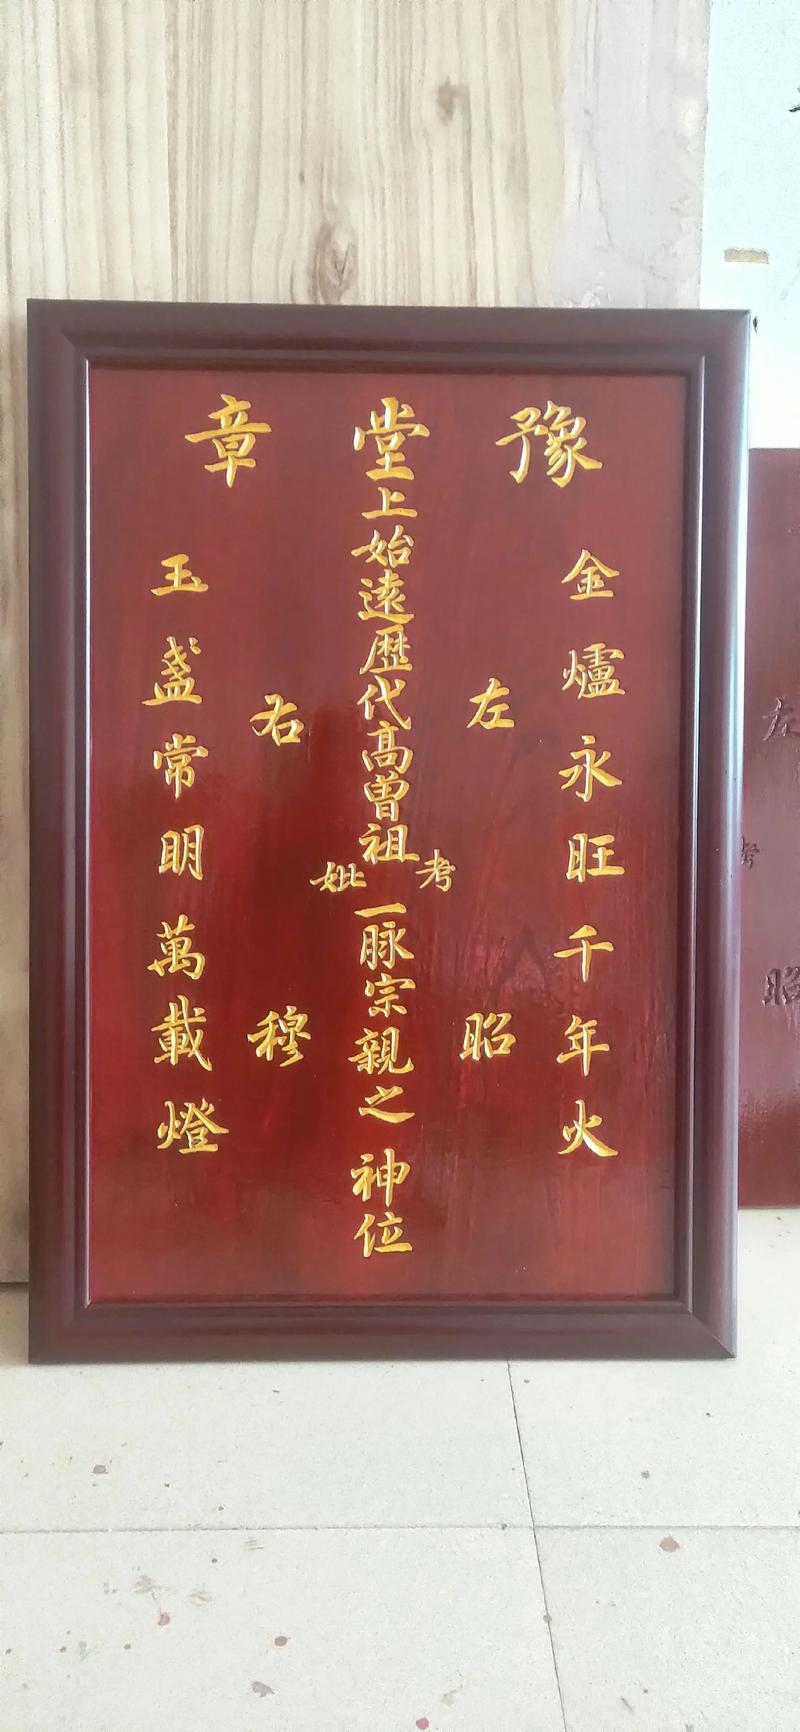 豫章
金爐永旺千年火
左昭
堂上始遠歷代高曾祖考妣一脉宗親之神位
右穆
玉盞常明萬載燈
左
考
昭